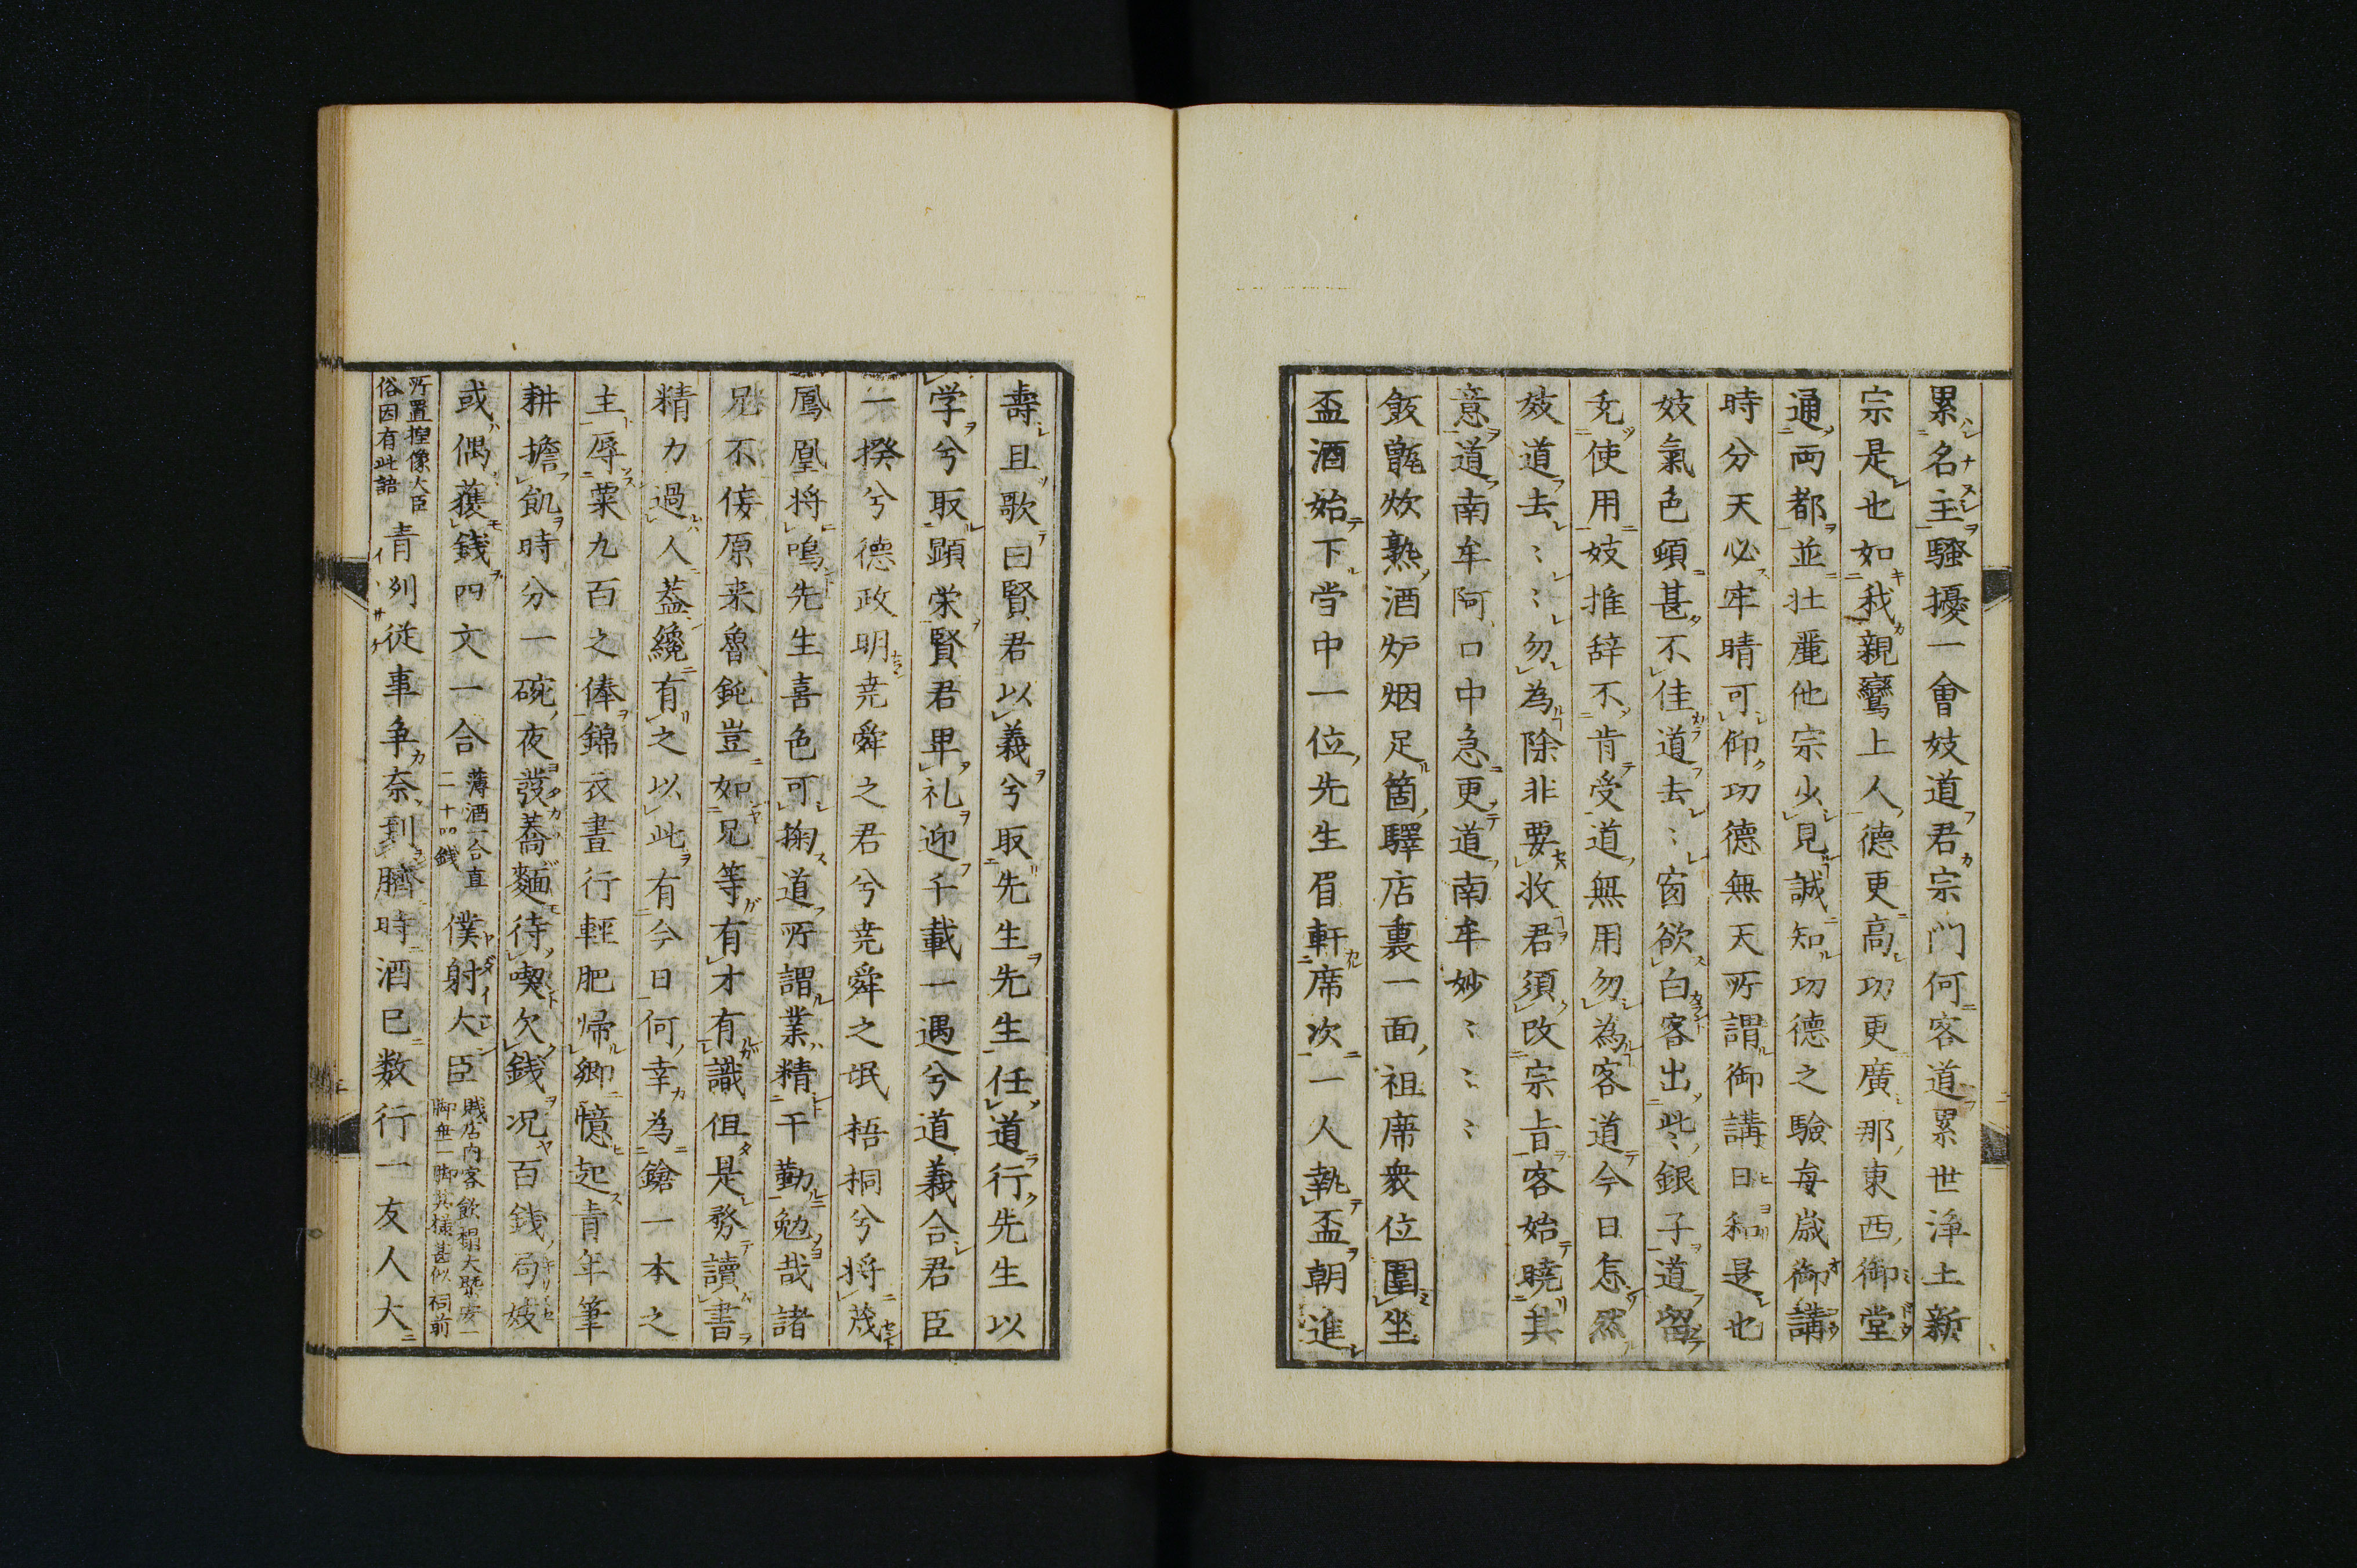 累名主騷擾一會妓道君宗門何客道累世淨土新
宗是也如我親鸞上人德更高功更廣那東西御堂
通両都並壮麗他宗少見誠知功德之驗每歳御講
時分天必牢晴可仰功德無天所謂御講日和是也
妓氣色頓甚不佳道去〻窗欲白客出些銀子道留
充使用妓推辞不肯受道無用勿為客道今日怎然
妓道去〻〻勿為除非要收君須改宗旨客始曉其
意道南牟阿口中急更道南牟妙〻〻〻
飯甑炊熟酒炉烟足箇驛店裏一面祖席衆位圍坐
盃酒始下當中一位先生眉軒席次一人執盃朝進
壽且歌曰賢君以義兮取先生先生任道行先生以
学兮取顕栄賢君卑礼迎千載一遇兮道義合君臣
一揆兮德政明尭舜之君兮尭舜之氓梧桐兮將茂
鳳凰将鳴先生喜色可掬道所謂業精于勤勉哉諸
兄不佞原来魯鈍豈如兄等有才有識但是務讀書
精力過人蓋纔有之以此有今日何幸為鎗一本之
主辱粟九百之俸錦衣晝行輕肥帰郷憶起青年筆
耕擔飢時分一碗夜發蕎麵待喫欠錢况百錢局妓
或偶獲錢四文一合
薄酒一合直
二十四錢
僕射大臣
賎店内客飲榻大槩安一
脚無一脚其様甚似祠前
所置揑像大臣
俗因有此語
青列従事争奈到臍時酒已数行一友人大